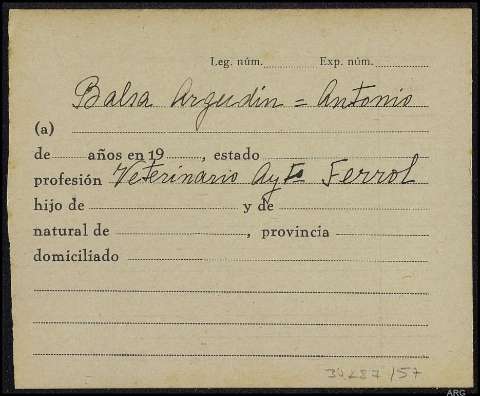 Leg. núm. Exp. núm.
Balsa Argudin = Antonio
(a)
de años en 19 , estado
profesión Veterinario Aytº Ferrol
hijo de y de
natural de , provincia
domiciliado
/57
ARG